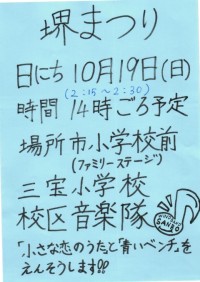 堺まつり
日にち 10月19日(日)
(2:15〜2:30)
時間 14時ごろ予定
場所 市小学校前
(ファミリーステージ)
三宝小学校
校区音楽隊
「小さな恋のうたと「青いベンチ」を
えんそうします!!
SANBO